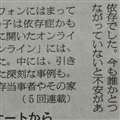 依存でした。今も誰かとつ
ながっていないと不安があ
フォンにはまって
子は依存症かも
に開いたオンライ
ンライン」には、
た。中には、引き
た深刻な事例も。
存当事者やその家
（５回連載）
ートから